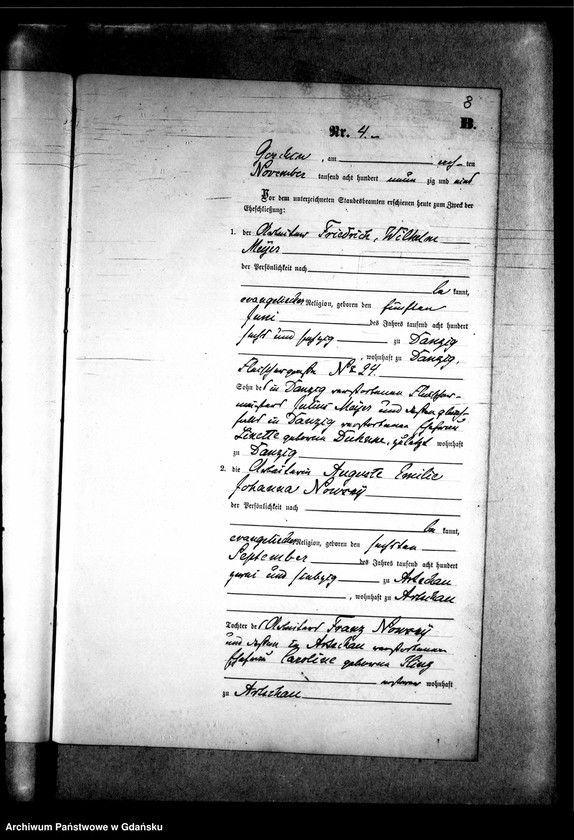 8
B.
Nr. 4.
am ten
November tausend acht hundert neun zig und
Vor dem unterzeichneten Standesbeamten erschienen heute zum Zweck der
Eheschließung:
1. der Arbeiter Friedrich, Wilhelm
Meyer
der Persönlichkeit nach
be kannt,
evangelischer Religion, geboren den fünften
Juni des Jahres tausend acht hundert
sechs und sechzig zu Danzig
, wohnhaft zu Danzig,
Fleischergasse No 24.
Sohn des in Danzig verstorbenen Fleischer-
meisters Julius Meyer und dessen gleich-
falls in Danzig verstorbenen Ehefrau
Linette geborene zuletzt wohnhaft
zu Danzig
2. die Arbeiterin Auguste Emilie
Johanna
der Persönlichkeit nach
be kannt,
evangelischer Religion, geboren den sechsten
September des Jahres tausend acht hundert
zwei und siebzig zu Artschau
, wohnhaft zu Artschau
Tochter des Arbeiters Franz
und dessen zu Artschau verstorbenen
Ehefrau Caroline geborene Kling
ersterer wohnhaft
zu Artschau
Archiwum Państwowe w Gdańsku